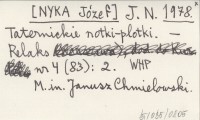 [NYKA Józef] J. N. 1978.
Taternickie notki-plotki. —
Relaks
nr 4 (83): 2. WHP
M. in. Janusz Chmielowski.